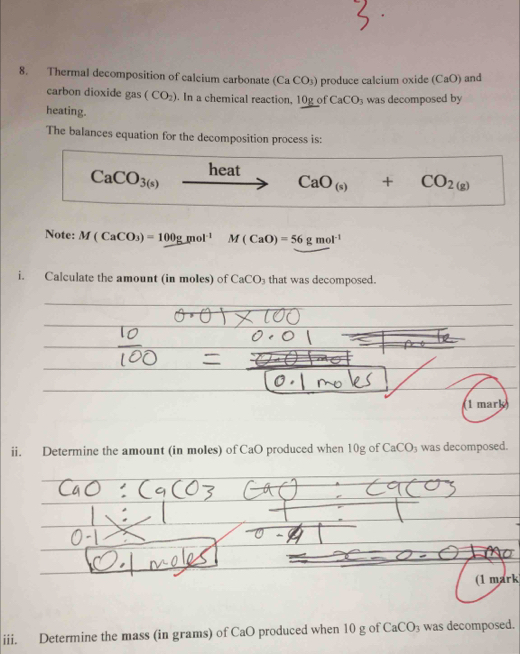 3.
8. Thermal decomposition of calcium carbonate (Ca CO₃) produce calcium oxide (CaO) and
carbon dioxide gas ( CO₂). In a chemical reaction, 10g of CaCO₃ was decomposed by
heating.
The balances equation for the decomposition process is:
CaCO₃(s) heat → CaO (s) + CO₂ (g)
Note: M ( CaCO₃) = 100g mol⁻¹ M ( CaO) = 56 g mol⁻¹
i. Calculate the amount (in moles) of CaCO₃ that was decomposed.
0.01 x 100
10 0.01
100 =
0.1 moles
(1 mark)
ii. Determine the amount (in moles) of CaO produced when 10g of CaCO₃ was decomposed.
CaO : CaCO3 CaO : CaCO3
1 : 1 1 : 1
0.1
0.1 moles
(1 mark
iii. Determine the mass (in grams) of CaO produced when 10 g of CaCO₃ was decomposed.